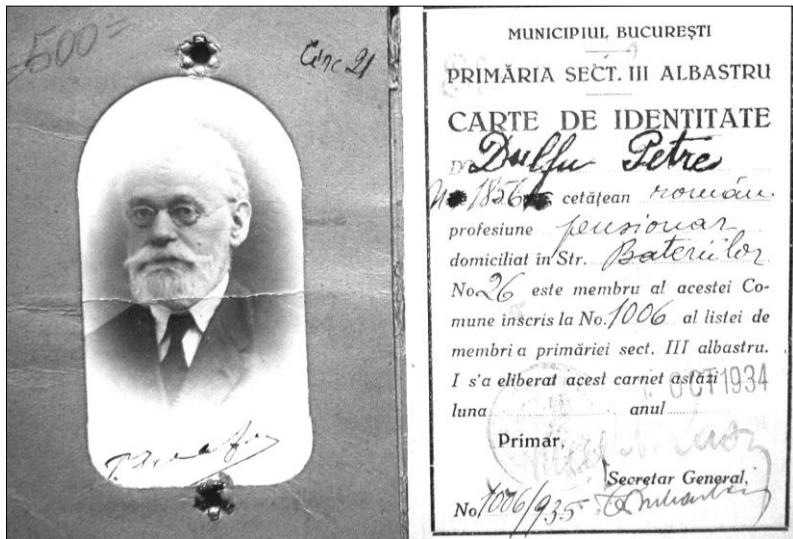 =500=
Circ 21
P. Dulfu
MUNICIPIUL BUCUREȘTI
PRIMĂRIA SECT. III ALBASTRU
CARTE DE IDENTITATE
D Dulfu Petre
N 1856 cetățean român
profesiune pensionar
domiciliat în Str. Bateriilor
No 26 este membru al acestei Co-
mune înscris la No. 1006 al listei de
membri a primăriei sect. III albastru.
I s'a eliberat acest carnet astăzi
OCT 1934
luna anul
Primar,
Secretar General,
No 1006/935